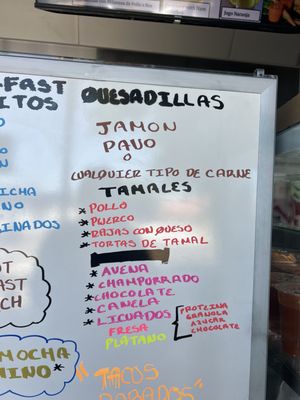 Jugo Naranja
FAST
ITOS
QUESADILLAS
JAMON
PAVO
O
CUALQUIER TIPO DE CARNE
TAMALES
* POLLO
* PUERCO
* RAJAS CON QUESO
* TORTAS DE TAMAL
* AVENA
* CHAMPURRADO
* CHOCOLATE
* CANELA
* LICUADOS
FRESA
PLATANO
PROTEINA
GRANOLA
AZUCAR
CHOCOLATE
ICHA
INO
INADOS
OT
AST
CH
MOCHA
MINO
"TACOS
DORADOS"